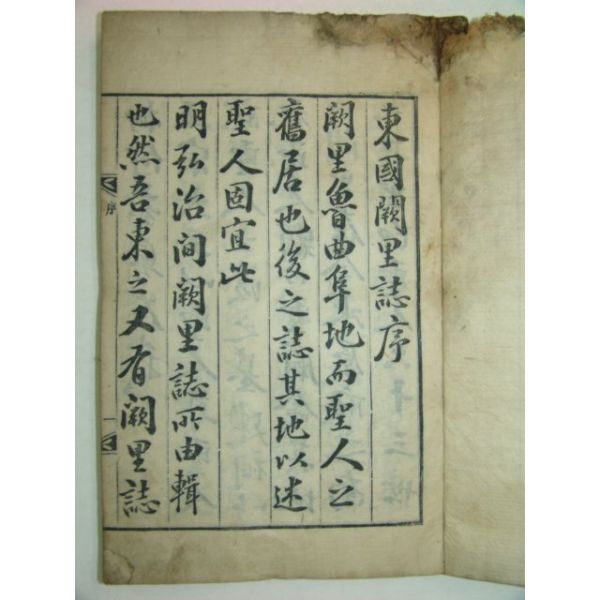 東國闕里誌序
闕里魯曲阜地而聖人之
舊居也後之誌其地以述
聖人固宜此
明弘治間闕里誌所由輯
也然吾東之又有闕里誌
序
一